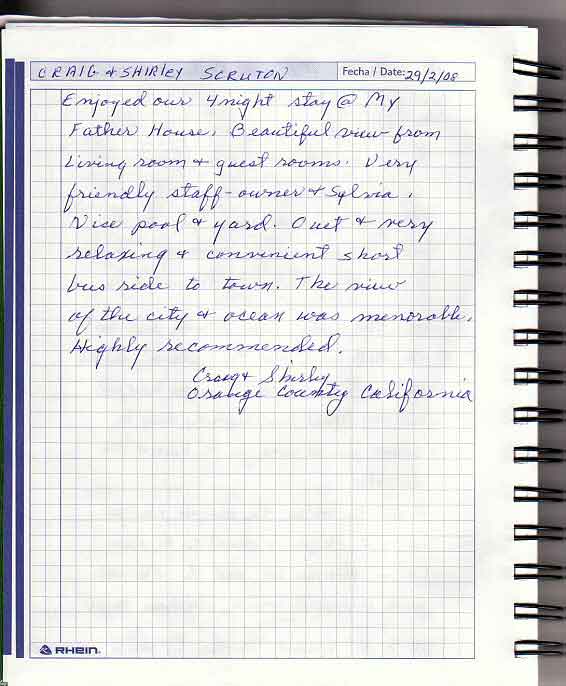 CRAIG & SHIRLEY SCRUTON Fecha / Date: 29/2/08
Enjoyed our 4 night stay @ My
Father House. Beautiful view from
Living room & guest rooms. Very
friendly staff-owner & Sylvia.
Nice pool & yard. Quit & very
relaxing & convinient short
bus ride to town. The view
of the city & ocean was memorable.
Highly recommended.
Craig & Shirley
Orange County California
RHEIN